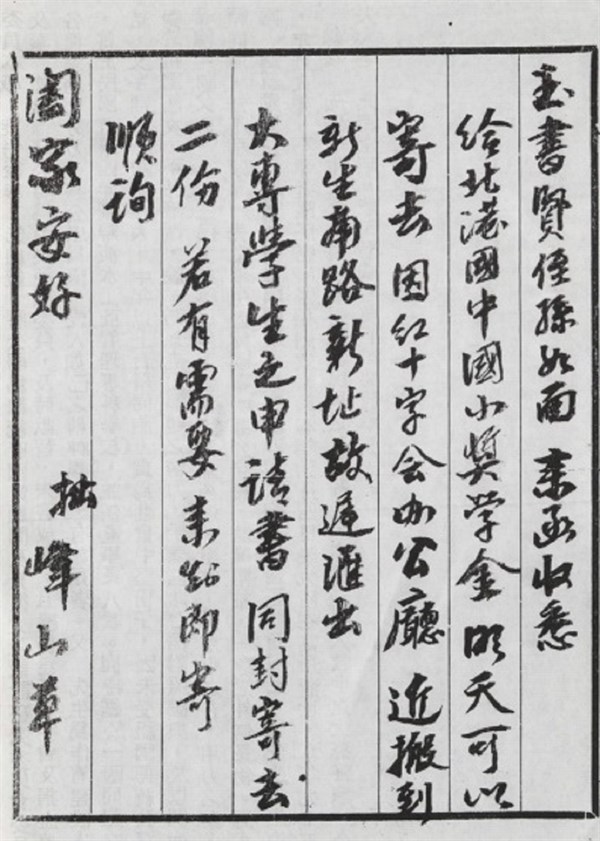 玉書賢侄孫如面 来函收悉
给北港國中國小奬学金 明天可以
寄去 因红十字会办公廳 近搬到
新生南路新址故遲滙出
大專學生之申請書 同封寄去
二份 若有需要 来 即寄
順詢
闔家安好
拙 峰山草